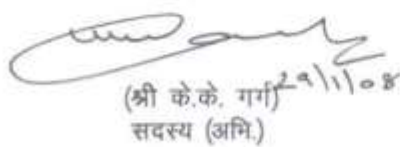 (श्री के.के. गर्ग) 29/1/08
सदस्य (अभि.)